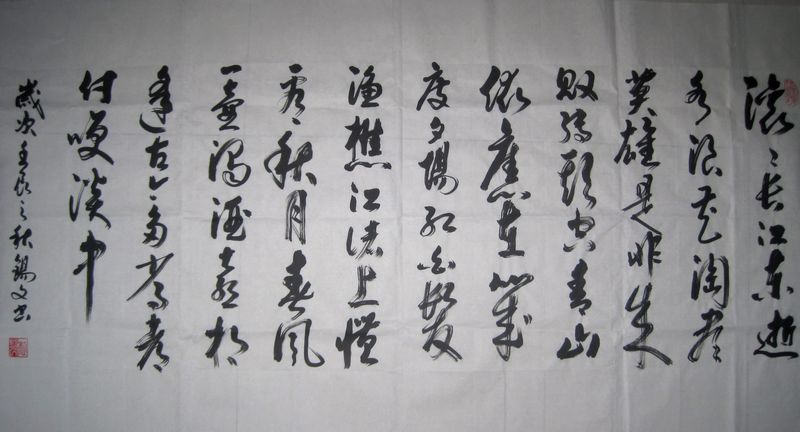 滚〻长江东逝
水浪花淘尽
英雄是非成
败转头空青山
依舊在几
度夕陽红白髮
漁樵江渚上惯
看秋月春风
一壶濁酒喜相
逢古今多少事都
付咲谈中
歲次壬辰之秋錫文书